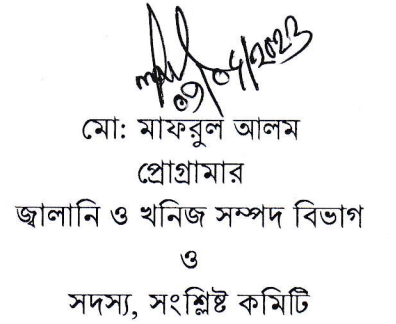 ০৭/০৫/২০২৩
মো: মাফরুল আলম
প্রোগ্রামার
জ্বালানি ও খনিজ সম্পদ বিভাগ
ও
সদস্য, সংশ্লিষ্ট কমিটি